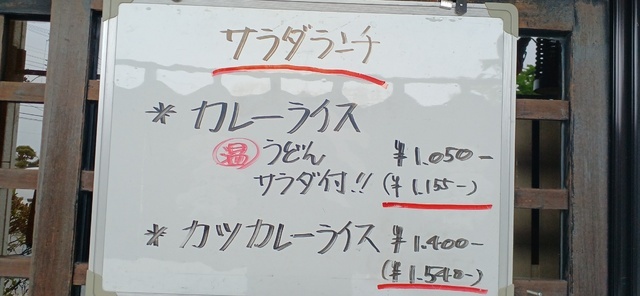 サラダランチ
* カレーライス
温 うどん ¥1.050-
サラダ付!! (¥1.155-)
* カツカレーライス ¥1.400-
(¥1.540-)